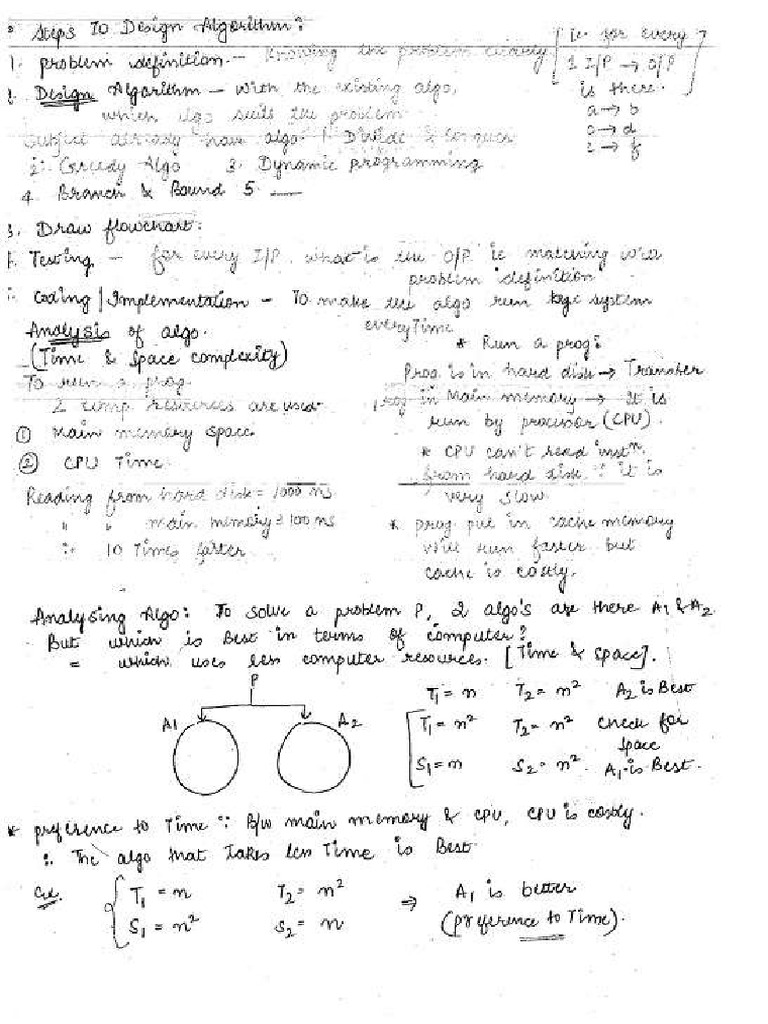 * Steps To Design Algorithm:
1. problem definition - Knowing the problem clearly [ie for every
1 I/P → O/P
is there.]
a → b
c → d
e → f
2. Design Algorithm - With the existing algo,
which algo suits the problem
Subject already have algo 1. Divide & Conquer
2. Greedy Algo 3. Dynamic programming
4. Branch & Bound 5. —
3. Draw flowchart:
Testing - for every I/P, what is the O/P ie matching with
problem definition
Coding / Implementation - To make the algo run system
every Time
Analysis of algo.
(Time & Space complexity)
To run a prog
2 comp resources are used.
① Main memory space.
② CPU Time.
Reading from hard disk = 1000 ns
" " main memory = 100 ns
∴ 10 Times faster
* Run a prog:
Prog. is in hard disk → Transfer
prog in Main memory → It is
run by processor (CPU).
* CPU can't read instⁿ.
from hard disk ∵ it is
very slow
* prog put in cache memory
will run faster but
cache is costly.
Analysing Algo: To solve a problem P, 2 algo's are there A1 & A2
But which is Best in terms of computer?
= which uses less computer resources. [Time & Space].
P
A1 A2
T1 = n T2 = n² A2 is Best
T1 = n² T2 = n² Check for
space
S1 = n S2 = n² A1 is Best.
* preference to Time ∵ B/w main memory & CPU, CPU is costly.
∴ The algo that takes less Time is Best
Ex. T1 = n T2 = n² ⇒ A1 is better
S1 = n² S2 = n (preference to Time).